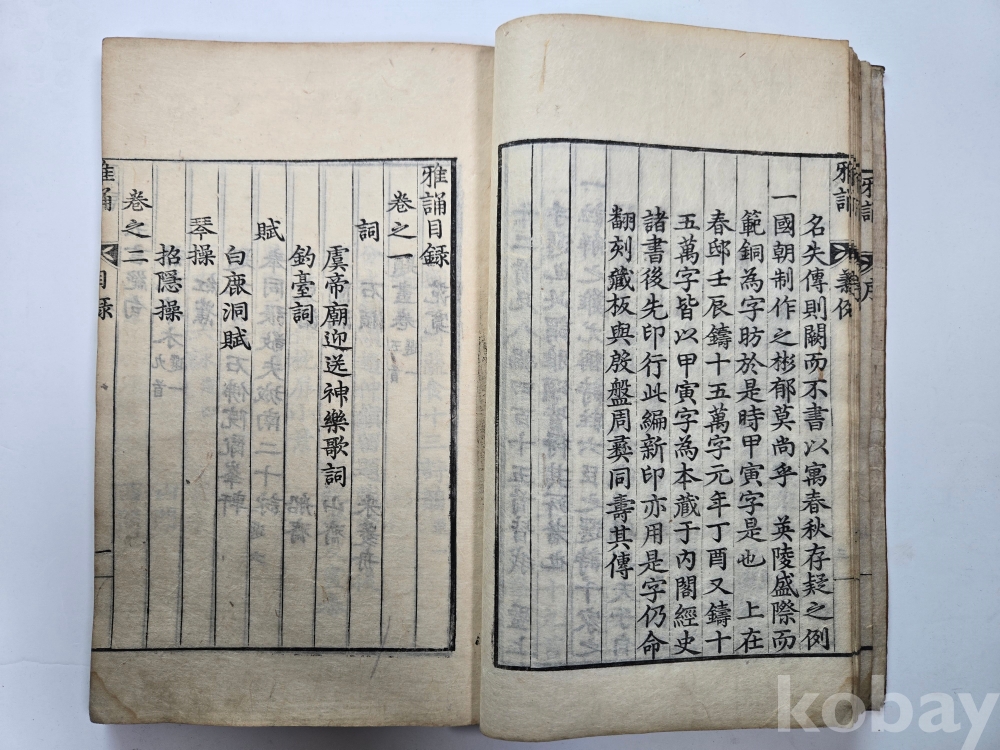 雅誦
義例
名失傳則闕而不書以寓春秋存疑之例
一國朝制作之彬郁莫尚乎 英陵盛際而
範銅為字昉於是時甲寅字是也 上在
春邸壬辰鑄十五萬字元年丁酉又鑄十
五萬字皆以甲寅字為本藏于內閣經史
諸書後先印行此編新印亦用是字仍命
翻刻藏板與殷盤周彝同壽其傳
雅誦目録
卷之一
詞
虞帝廟迎送神樂歌詞
釣臺詞
賦
白鹿洞賦
琴操
招隱操
卷之二
雅誦
目録
一
kobay